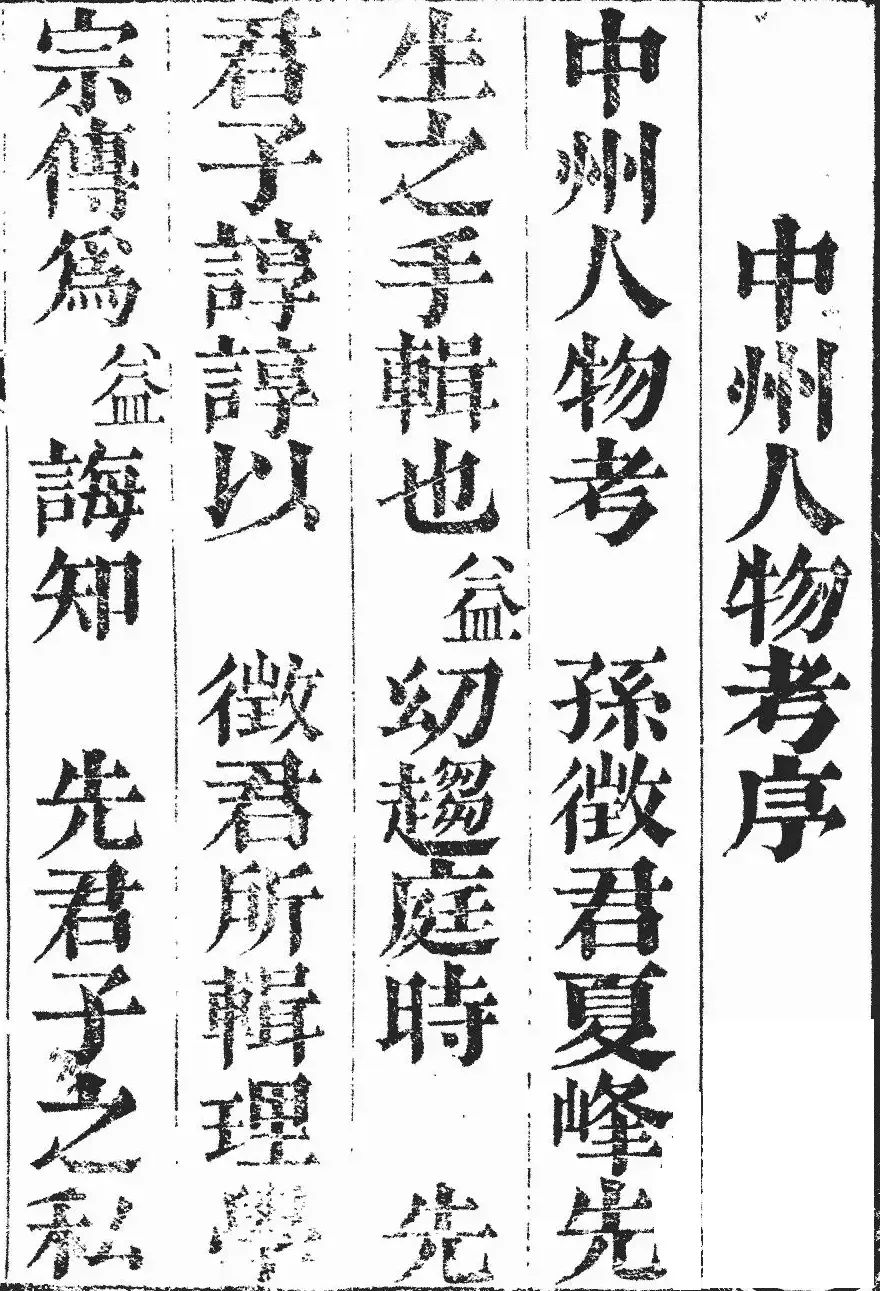 中州人物考序
中州人物考 孫徵君夏峰先
生之手輯也益幼趨庭時 先
君子諄諄以 徵君所輯理學
宗傳爲益誨知 先君子之私